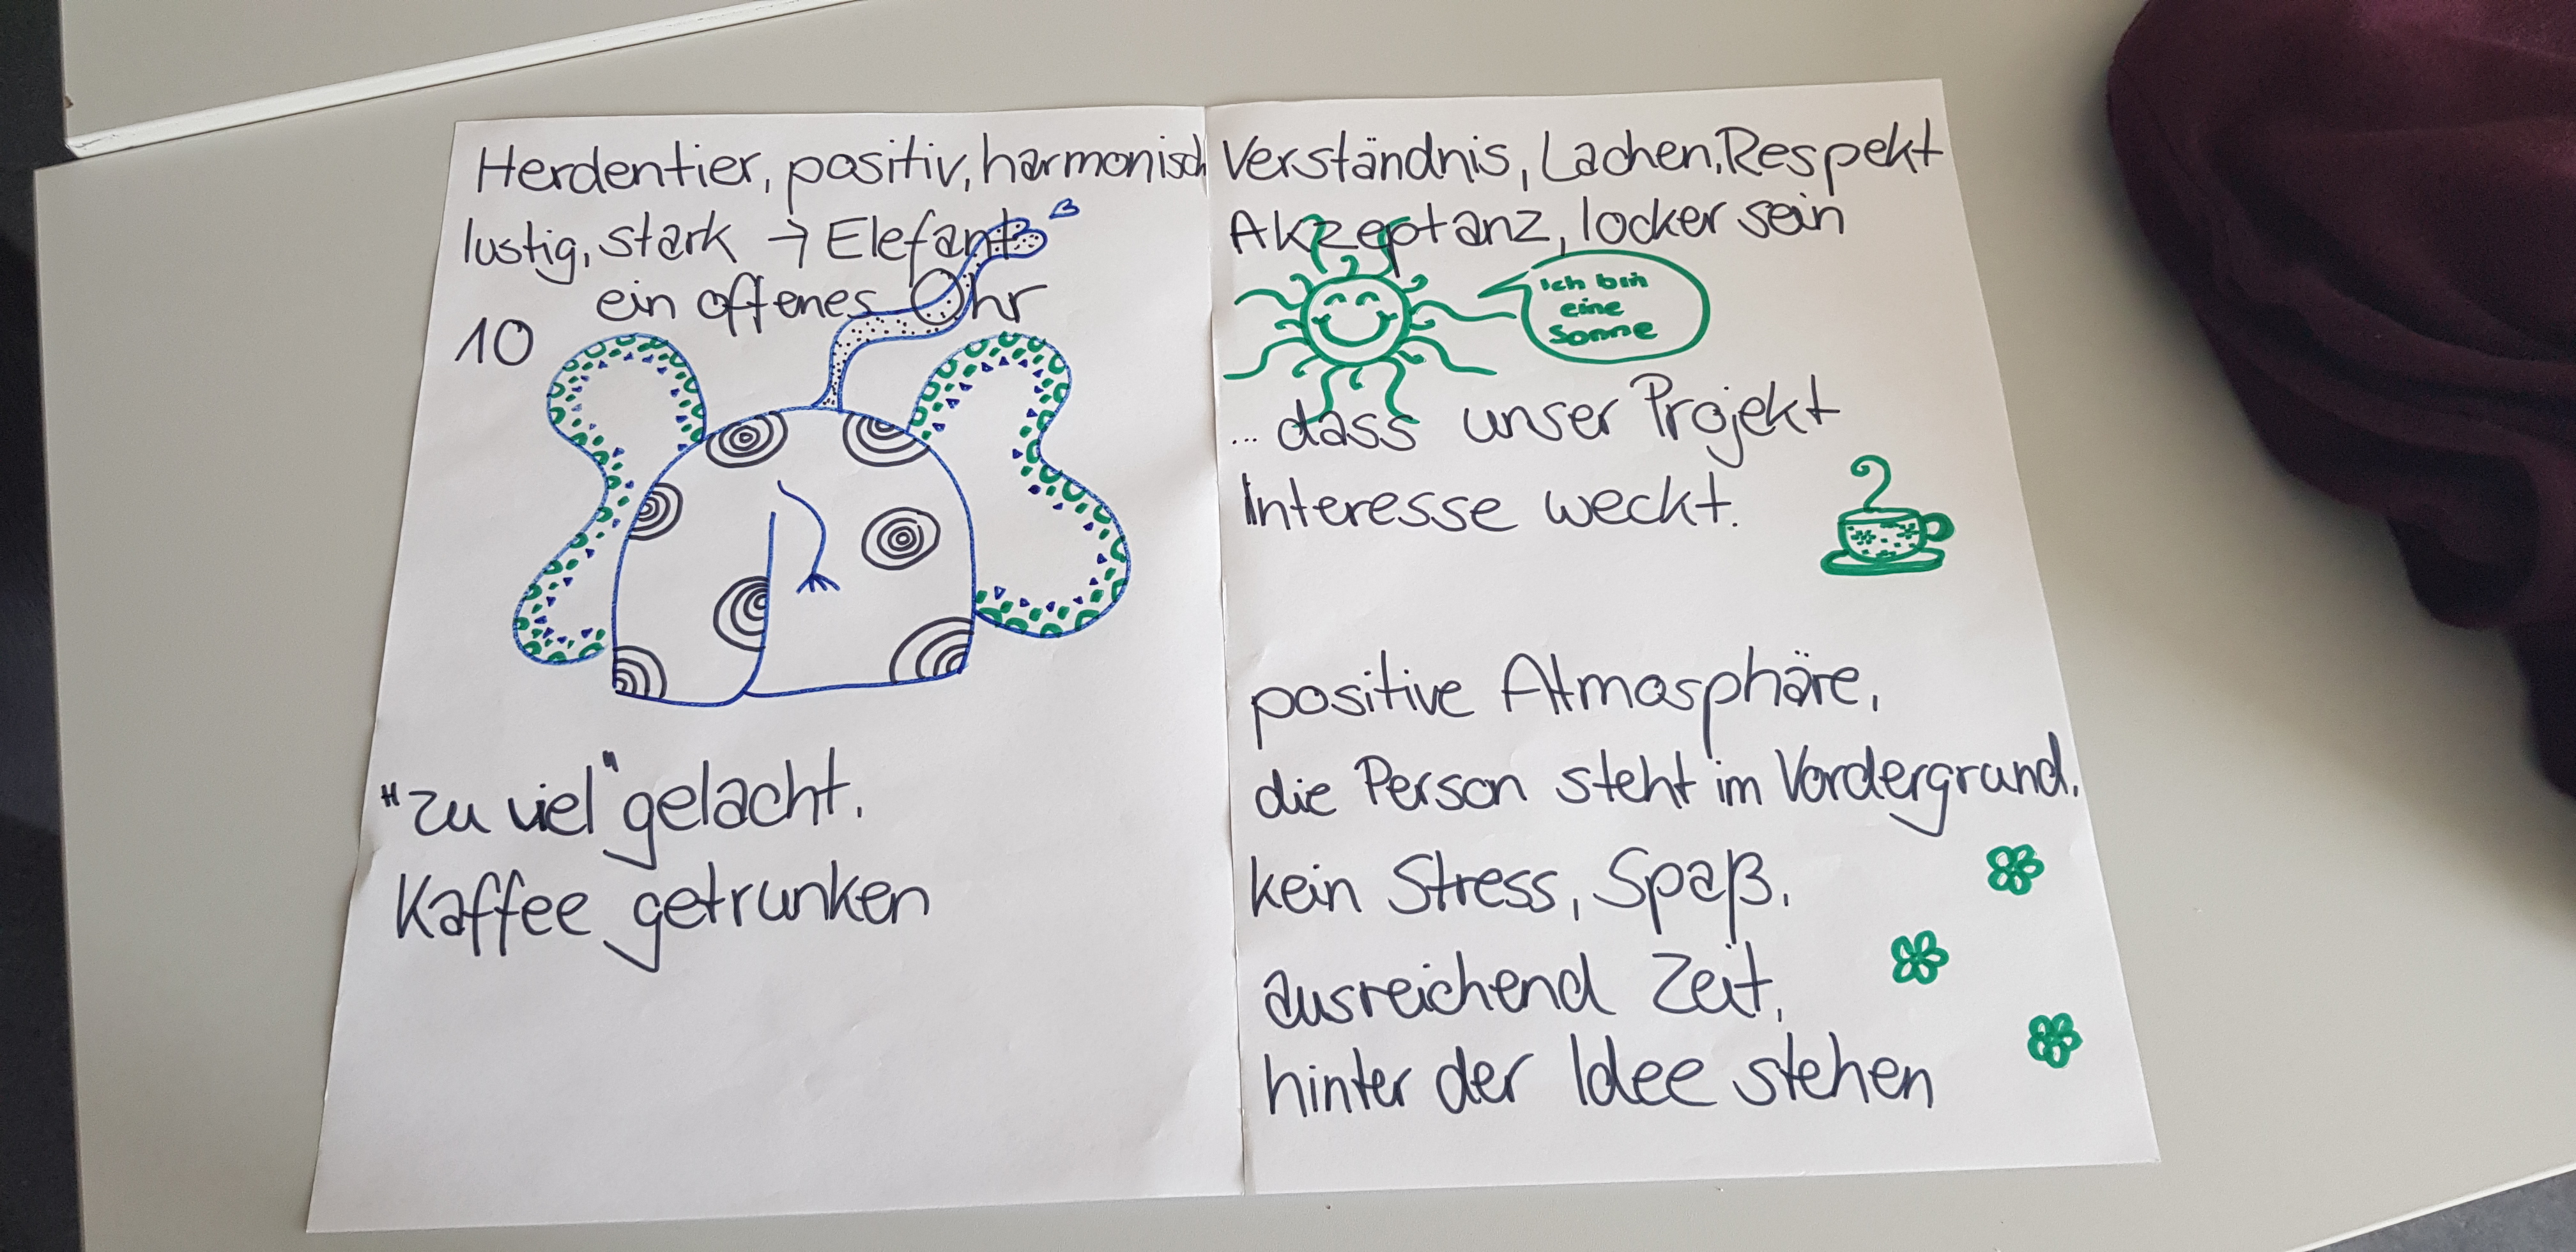 Herdentier, positiv, harmonisch
lustig, stark → Elefant
ein offenes Ohr
10
"zu viel" gelacht.
Kaffee getrunken
Verständnis, Lachen, Respekt
Akzeptanz, locker sein
Ich bin
eine
Sonne
... dass unser Projekt
Interesse weckt.
positive Atmosphäre,
die Person steht im Vordergrund,
kein Stress, Spaß,
ausreichend Zeit,
hinter der Idee stehen